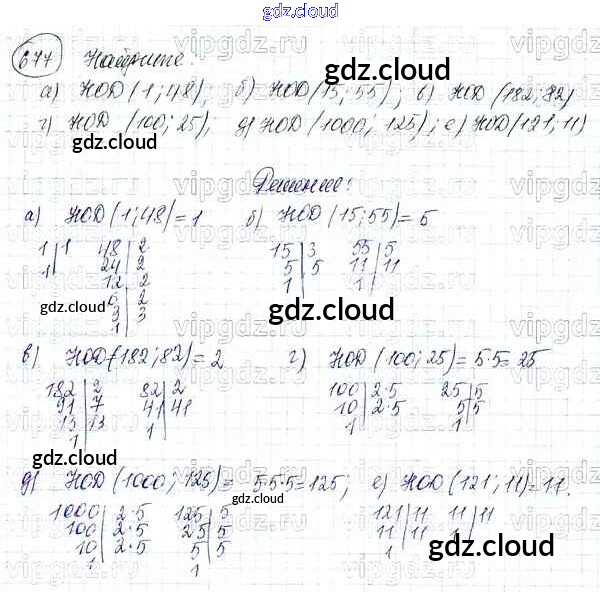 gdz.cloud
677 Найдите:
а) НОД (1; 48); б) НОД (15; 55); в) НОД (182; 82)
г) НОД (100; 25); д) НОД (1000; 125); е) НОД (121; 11)
Решение:
а) НОД (1; 48) = 1 б) НОД (15; 55) = 5
1 | 1 48 | 2 15 | 3 55 | 5
1 | 24 | 2 5 | 5 11 | 11
12 | 2 1 | 1 |
6 | 2
3 | 3
1 |
в) НОД (182; 82) = 2 г) НОД (100; 25) = 5·5 = 25
182 | 2 82 | 2 100 | 2·5 25 | 5
91 | 7 41 | 41 10 | 2·5 5 | 5
13 | 13 1 | 1 | 1 |
1 |
д) НОД (1000; 125) = 5·5·5 = 125; е) НОД (121; 11) = 11.
1000 | 2·5 125 | 5 121 | 11 11 | 11
100 | 2·5 25 | 5 11 | 11 1 |
10 | 2·5 5 | 5 1 |
1 1
gdz.cloud
gdz.cloud
gdz.cloud
gdz.cloud
gdz.cloud
gdz.cloud
gdz.cloud
gdz.cloud
gdz.cloud